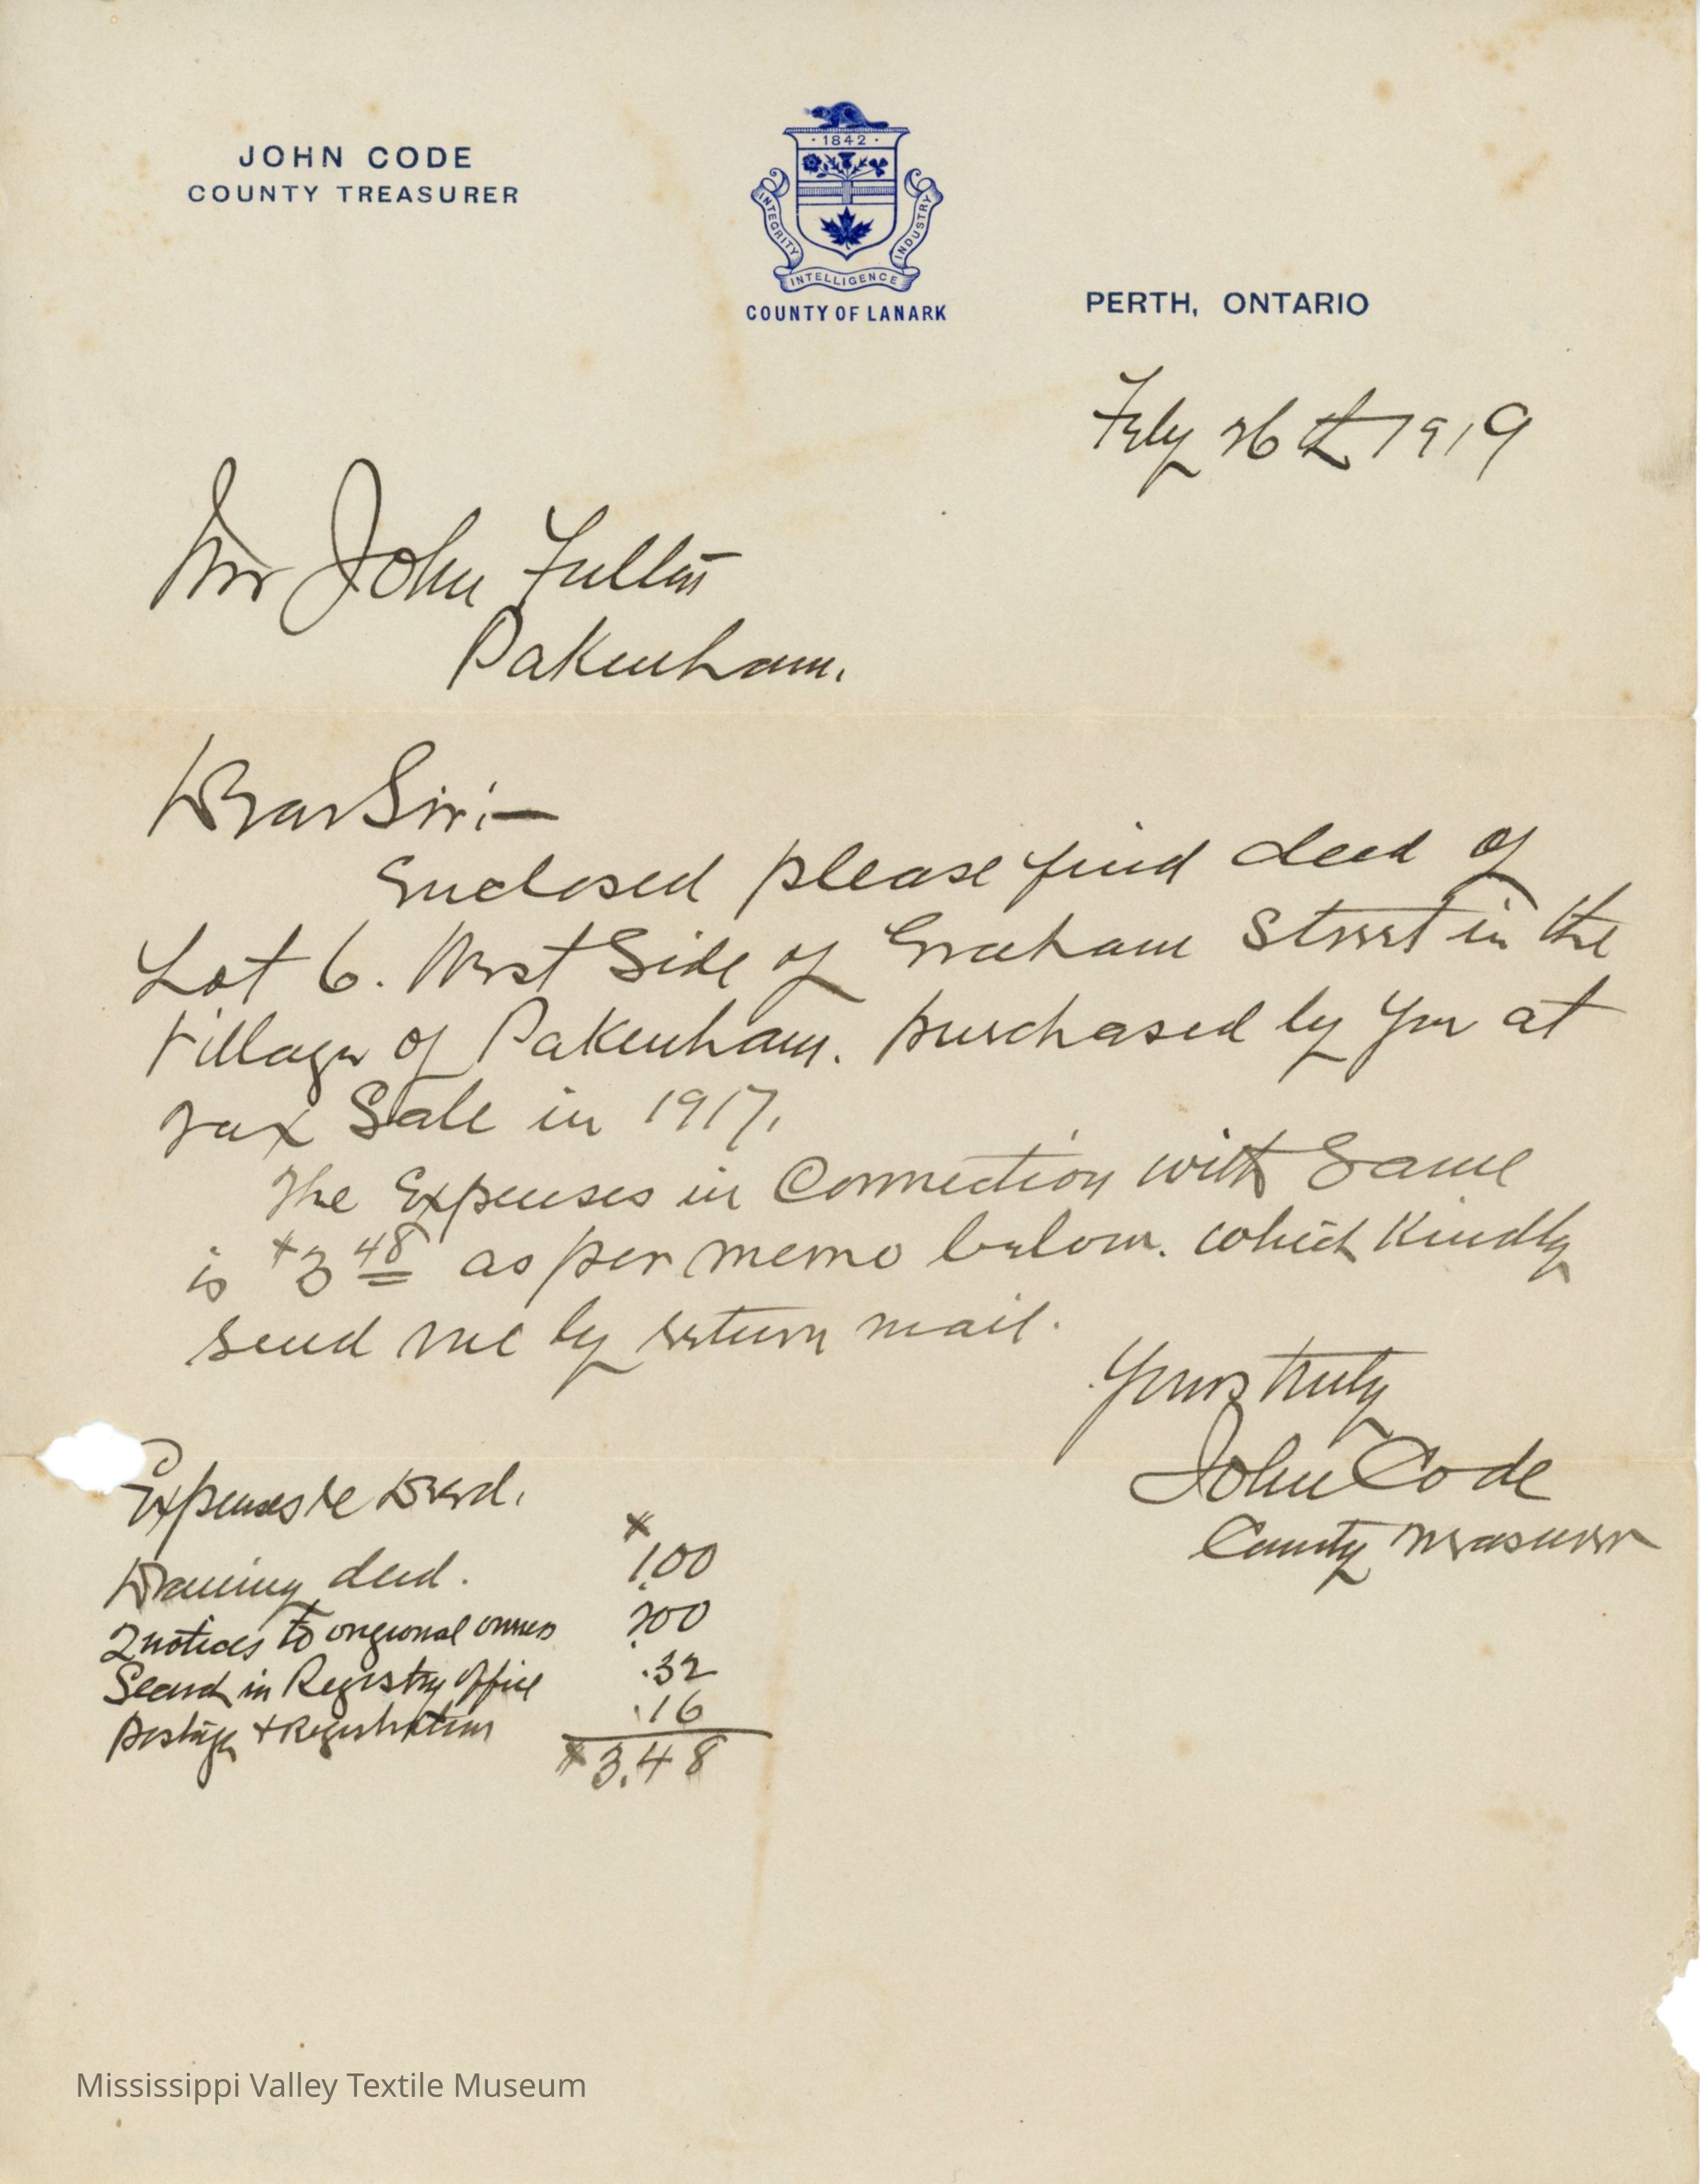 JOHN CODE
COUNTY TREASURER
· 1842 ·
INTEGRITY
INTELLIGENCE
INDUSTRY
COUNTY OF LANARK
PERTH, ONTARIO
Feby 26th 1919
Mr John Fulton
Pakenham.
Dear Sir:—
Enclosed please find deed of
Lot 6. West Side of Graham Street in the
Village of Pakenham. purchased by you at
Tax Sale in 1917.
The Expenses in Connection with Same
is $3 48 as per memo below. which Kindly
send me by return mail.
Yours truly
John Code
County Treasurer
Expenses re Deed.
$
Drawing deed. 1.00
2 notices to origional owners 2.00
Search in Registry Office .32
Postage + Registration .16
$3.48
Mississippi Valley Textile Museum